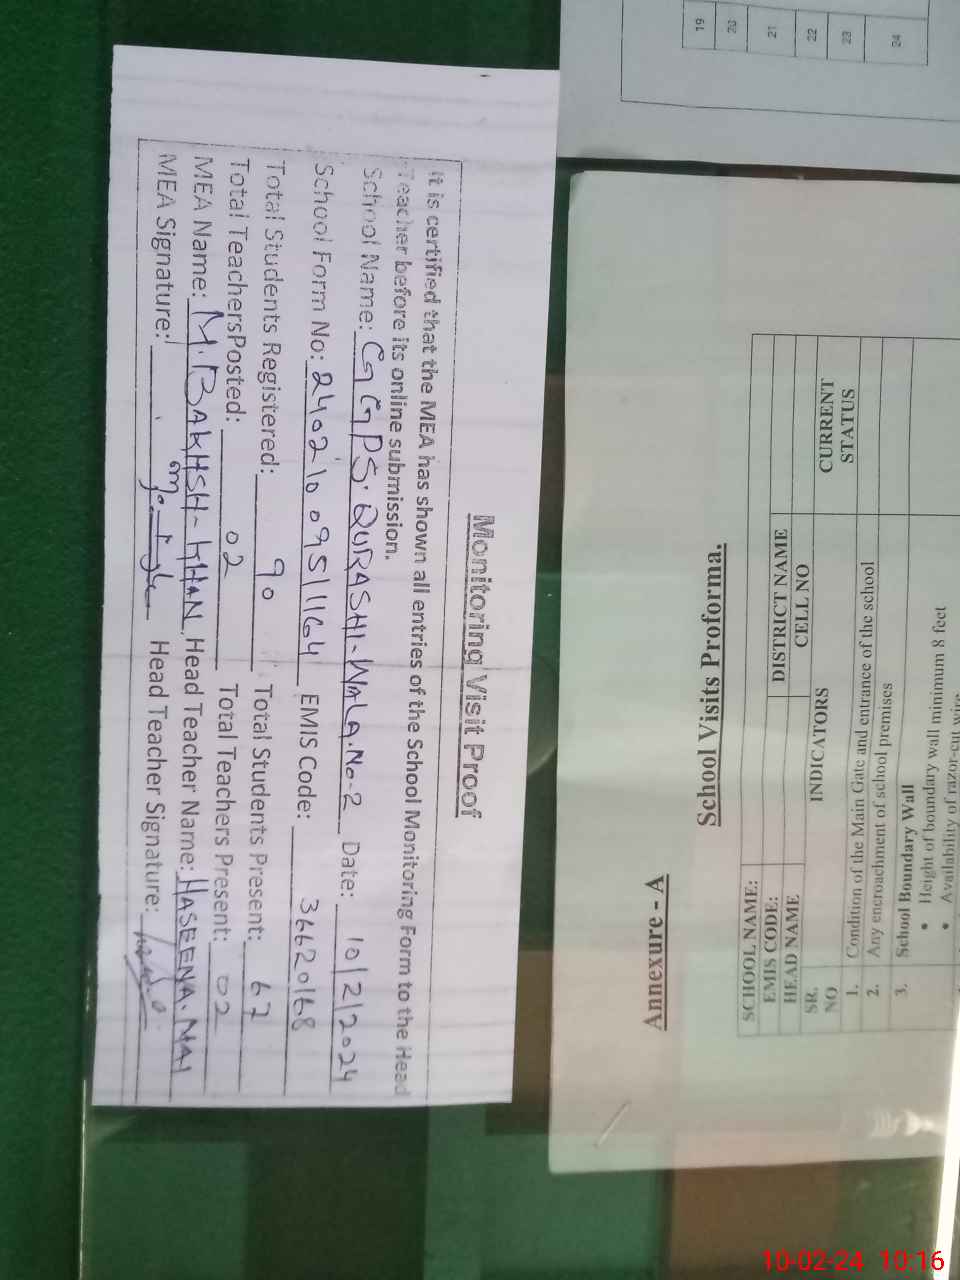 Monitoring Visit Proof
It is certified that the MEA has shown all entries of the School Monitoring Form to the Head
Teacher before its online submission.
School Name: GGPS. QURASHI-WALA.No-2 Date: 10/2/2024
School Form No: 2402100951164 EMIS Code: 36620168
Total Students Registered: 90 Total Students Present: 67
Total TeachersPosted: 02 Total Teachers Present: 02
MEA Name: M.BAKHSH-KHAN Head Teacher Name: HASEENA.MAI
MEA Signature: Head Teacher Signature:
19
20
21
22
23
24
Annexure - A
School Visits Proforma.
SCHOOL NAME:
EMIS CODE: DISTRICT NAME
HEAD NAME CELL NO
SR. NO INDICATORS CURRENT STATUS
1. Condition of the Main Gate and entrance of the school
2. Any encroachment of school premises
3. School Boundary Wall
• Height of boundary wall minimum 8 feet
• Availability of razor-cut wire
10-02-24 10:16